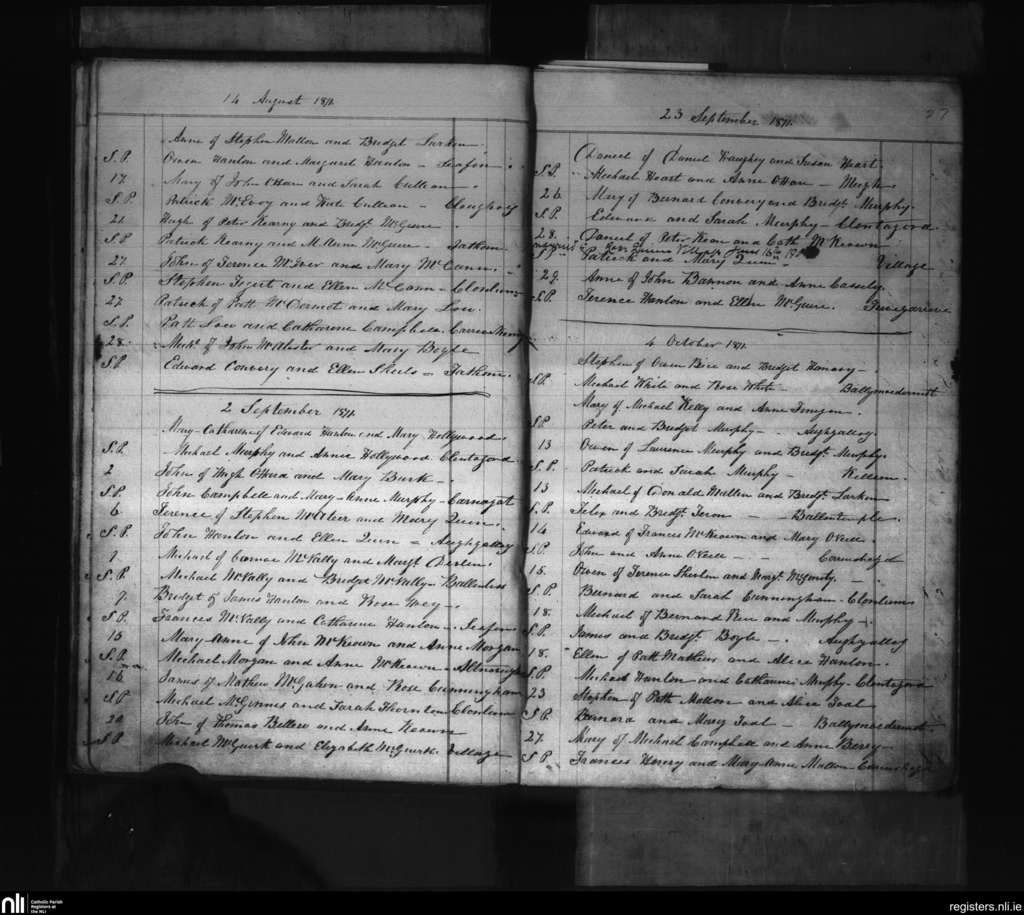 14 August 1871.
Anne of Stephen Mallon and Bridget Larken
S.P. Owen Hanlon and Margaret Hanlon - Seafin
17 Mary of John OHare and Sarah Cullion
S.P. Patrick McEvoy and Kate Cullion - Cloughoy
21 Hugh of Peter Kearny and Bridgt McGuire
S.P. Patrick Kearny and M. Anne McGuire - Fathom
27. John of Terence McIver and Mary McCann
S.P. Stephen and Ellen McCann - Clonlum
27 Patrick of Patt McDermot and Mary Low.
S.P. Patt Low and Catharine Campbell.
28. Michl of John McAlister and Mary Boyle
S.P. Edward Convery and Ellen Sheels - Fathom.
2 September 1871.
Mary Catharine of Edward Hanlon and Mary Hollywood.
S.P. Michael Murphy and Annie Hollywood Clontagord
2 John of Hugh OHara and Mary Burk
S.P. John Campbell and Mary-Anne Murphy - Carnagat
6 Terence of Stephen McAteer and Mary Quin.
S.P. John Hanlon and Ellen Quin - Aughgalloy
7. Michael of McNally and Margt Devlin
S.P. Michael McNally and Bridget McNally - Ballinless
7. Bridget of James Hanlon and Rose
S.P. Frances McNally and Catharine Hanlon - Seafin
13 Mary Anne of John McKeown and Anne Morgan
S.P. Michael Morgan and Anne McKeown -
16 James of Mathew McGahon and Rose Cunningham
S.P. Michael McGinnes and Sarah Thornton Clonlum
20 John of Thomas Bellew and Anne Keown
S.P. Michael McGurk and Elizabeth McGurk. Village
27
23 September 1871.
Daniel of Daniel Haughey and Susan Heart
S.P. Michael Heart and Anne OHare - Meigh
26 Mary of Bernard Convery and Bridgt Murphy.
S.P. Edward and Sarah Murphy - Clontagord
28. Daniel of Peter Keon and Cath McKeown
S.P. Patrick and Mary Quin - Village
29. Anne of John Bannon and Anne Casseley.
S.P. Terence Hanlon and Ellen McGuire.
4 October 1871.
Stephen of Owen Rice and Bridget
S.P. Michael White and Rose White - Ballymacdermot
Mary of Michael Kelly and Anne Finegan.
S.P. Peter and Bridget Murphy - Aughgalloy.
13 Owen of Laurence Murphy and Bridgt Murphy.
S.P. Patrick and Sarah Murphy - Killeen.
13 Michael of Donald Mallon and Bridgt Larken
S.P. Felix and Bridgt - Ballintemple.
14 Edward of Frances McKeown and Mary ONeill.
S.P. John and Anne ONeill -
15. Owen of Terence and Margt McGinity.
S.P. Bernard and Sarah Cunningham - Clonlum
18. Michael of Bernard Rice and Murphy -
S.P. James and Bridgt Boyle - Aughgalloy
18. Ellen of Patt Mathews and Alice Hanlon.
S.P. Michael Hanlon and Catharine Murphy - Clontagord
23 Stephen of Patt Mallon and Alice Toal
S.P. Bernard and Mary Toal - Ballymacdermot.
27. Mary of Michael Campbell and Anne Berry -
S.P. Frances Henry and Mary Anne Mallon -
nli Catholic Parish Registers at the NLI
registers.nli.ie